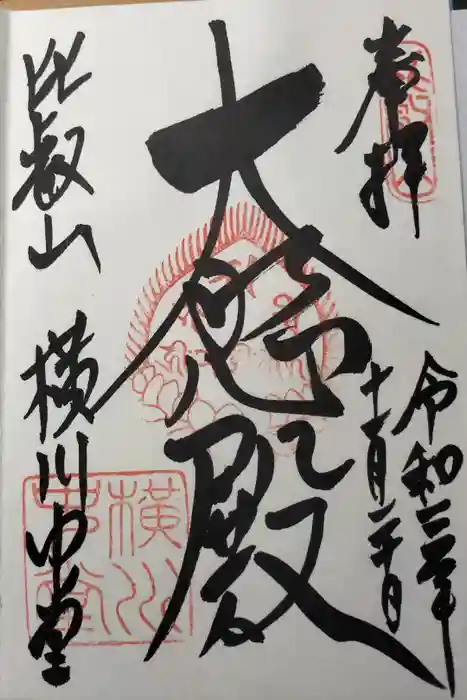 奉拝
令和三年
十一月二十日
大殿
比叡山 横川中堂
横川
中堂